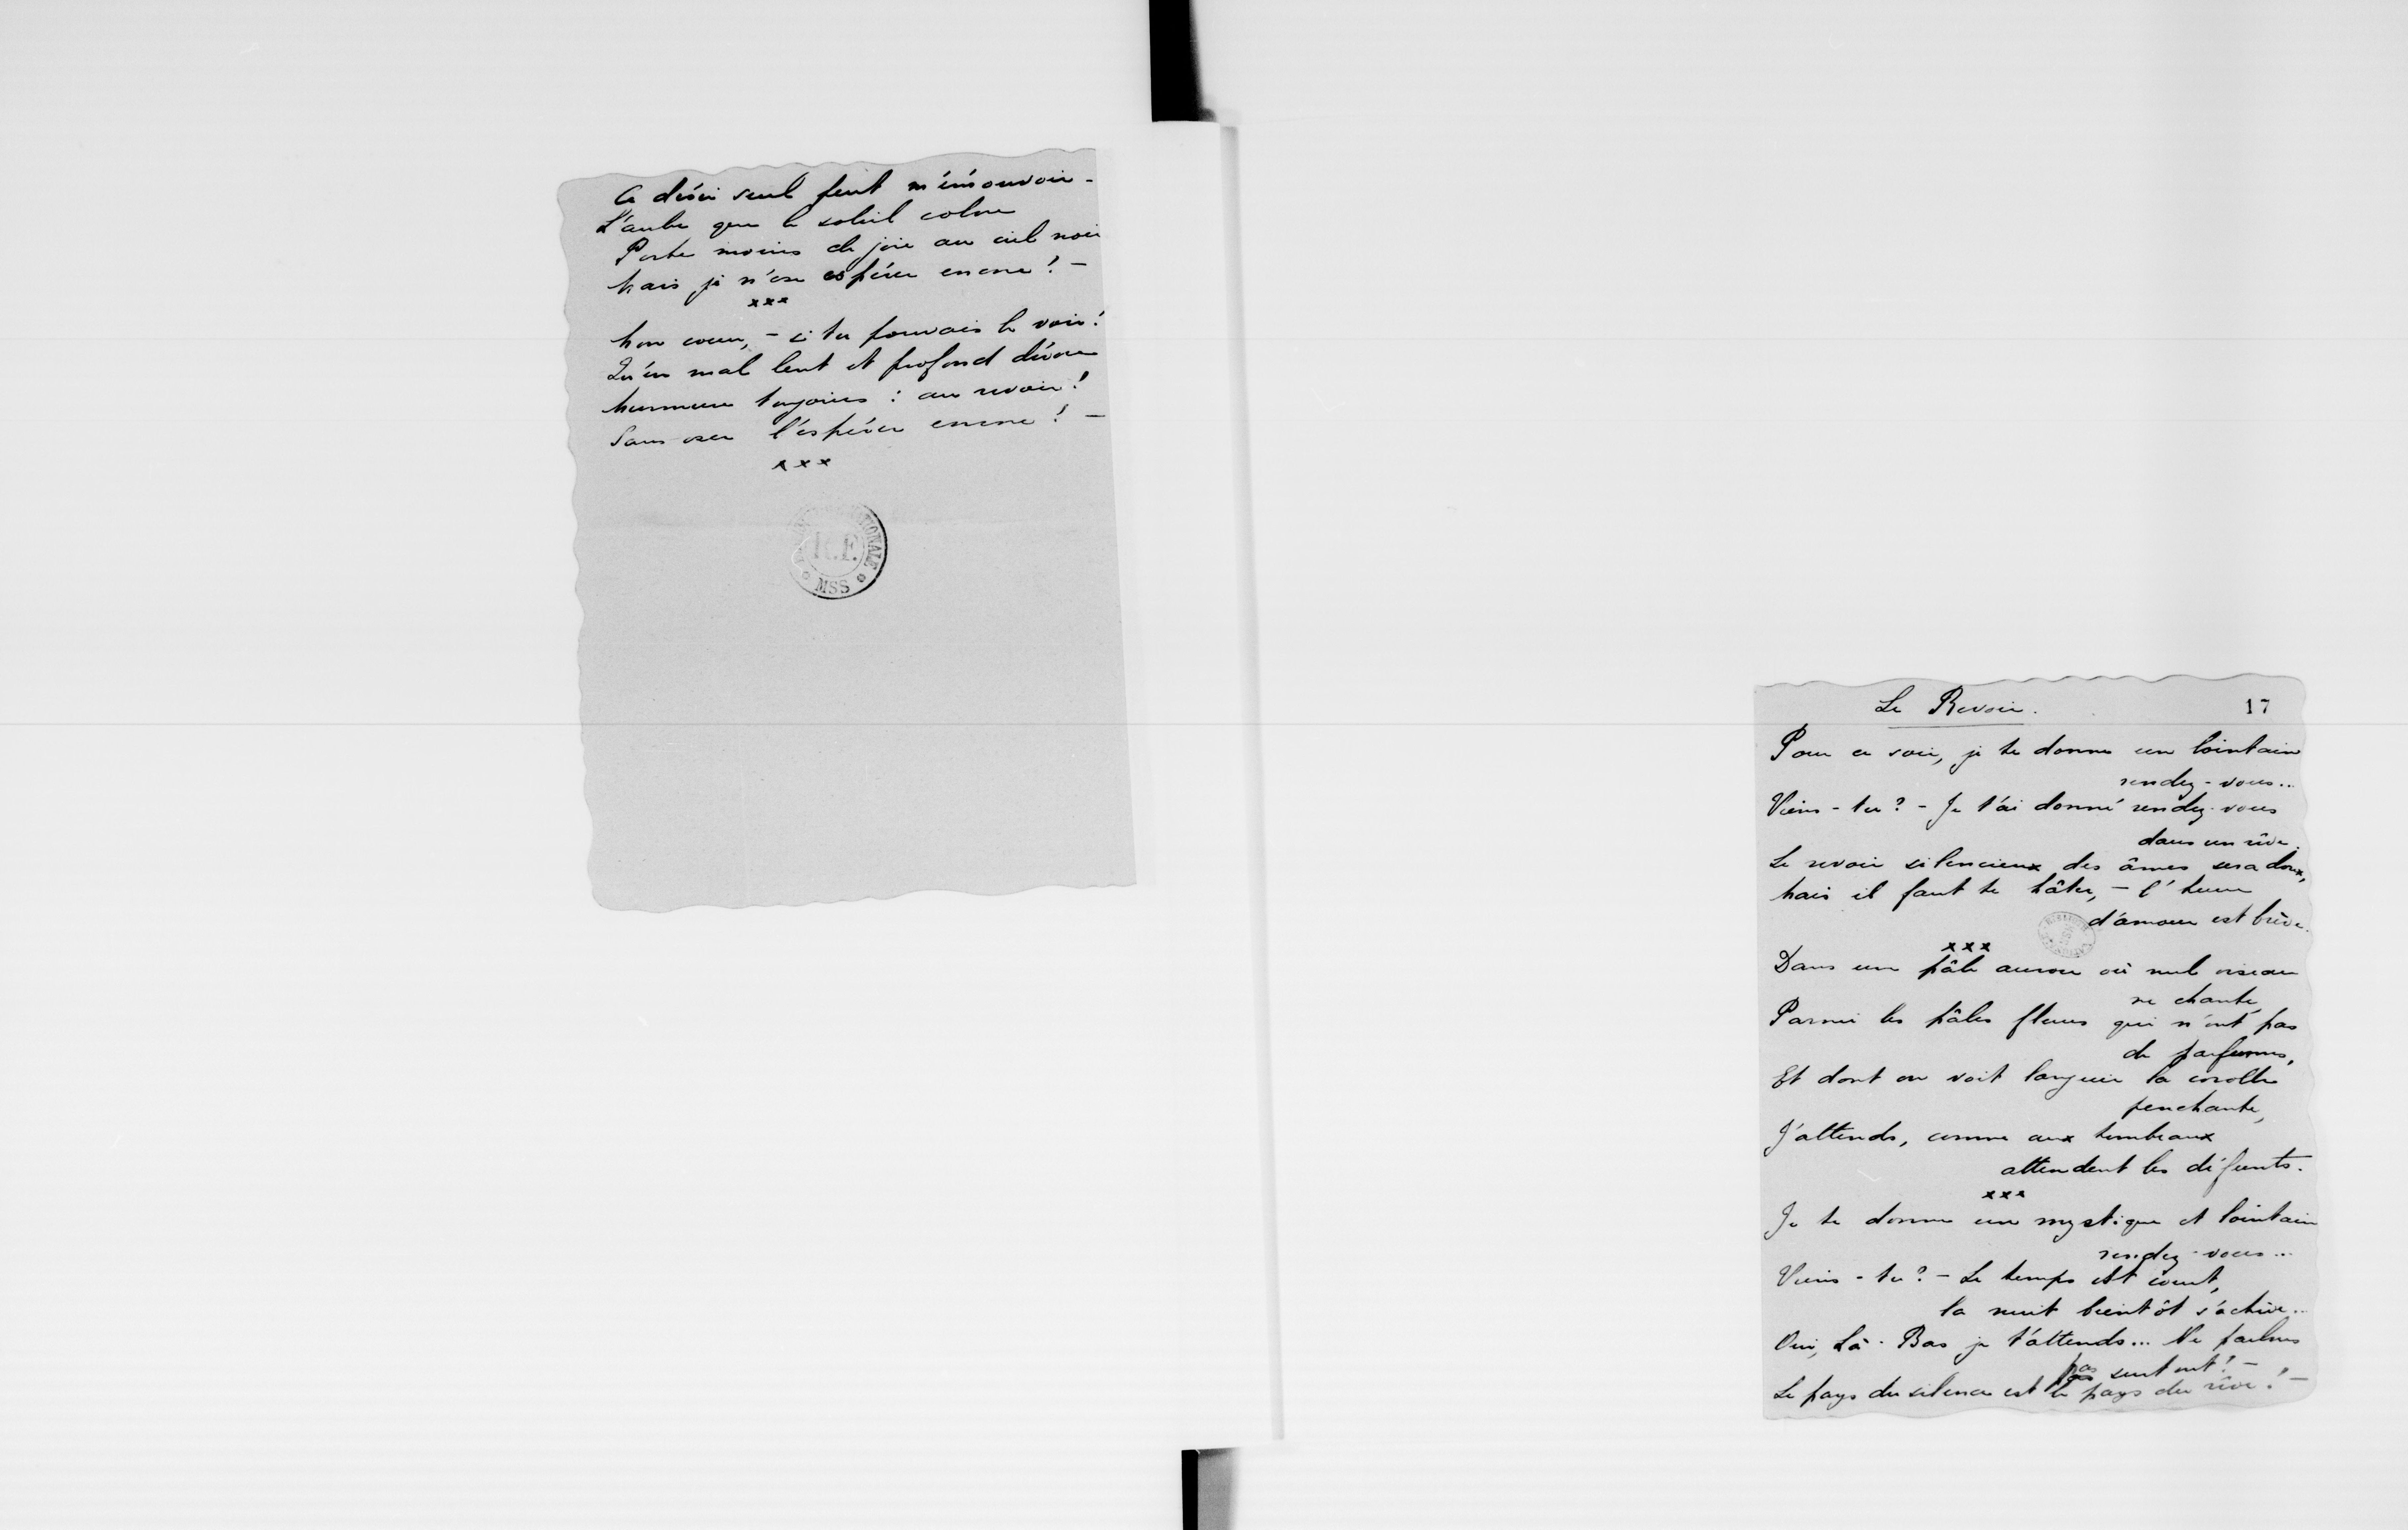 Ce désir seul peut m'émouvoir -
L'aube que le soleil colore
Porte moins de joie au ciel noir
Mais je n'ose espérer encore ! -
x x x
Mon coeur, - si tu pouvais le voir !
Qu'un mal lent et profond dévore
Murmure toujours : au revoir !
Sans oser l'espérer encore ! -
x x x
NATIONALE
R.F.
MSS
Le Revoir.
17
Pour ce soir, je te donne un lointain
rendez-vous...
Viens-tu ? - Je t'ai donné rendez-vous
dans un rêve.
Le revoir silencieux des âmes sera doux,
Mais il faut te hâter, - l'heure
d'amour est brève.
x x x
Dans une pâle aurore où nul oiseau
ne chante,
Parmi les pâles fleurs qui n'ont pas
de parfums,
Et dont on voit languir la corolle
penchante,
J'attends, comme aux tombeaux
attendent les défunts.
x x x
Je te donne un mystique et lointain
rendez-vous...
Viens-tu ? - Le temps est court,
la nuit bientôt s'achève...
Oui, Là-Bas je t'attends... Ne parlons
pas surtout ! -
Le pays du silence est le pays du rêve ! -